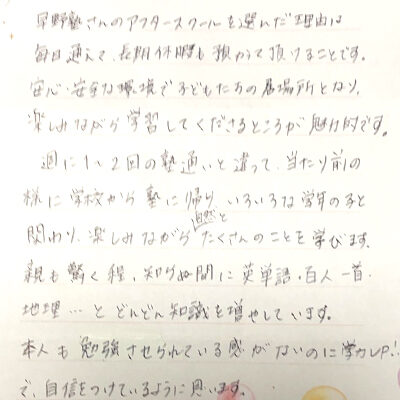 早野塾さんのアフタースクールを選んだ理由は
毎日通えて、長期休暇も預かって頂けることです。
安心・安全な環境で子どもたちの居場所となり、
楽しみながら学習してくださるところが魅力的です。
週に1、2回の塾通いと違って、当たり前の
様に学校から塾に帰り、いろいろな学年の子と
関わり、楽しみながら自然とたくさんのことを学びます。
親も驚く程、知らぬ間に英単語・百人一首・
地理…とどんどん知識を増やしています。
本人も勉強させられている感がないのに学力UP!!
で、自信をつけているように思います。